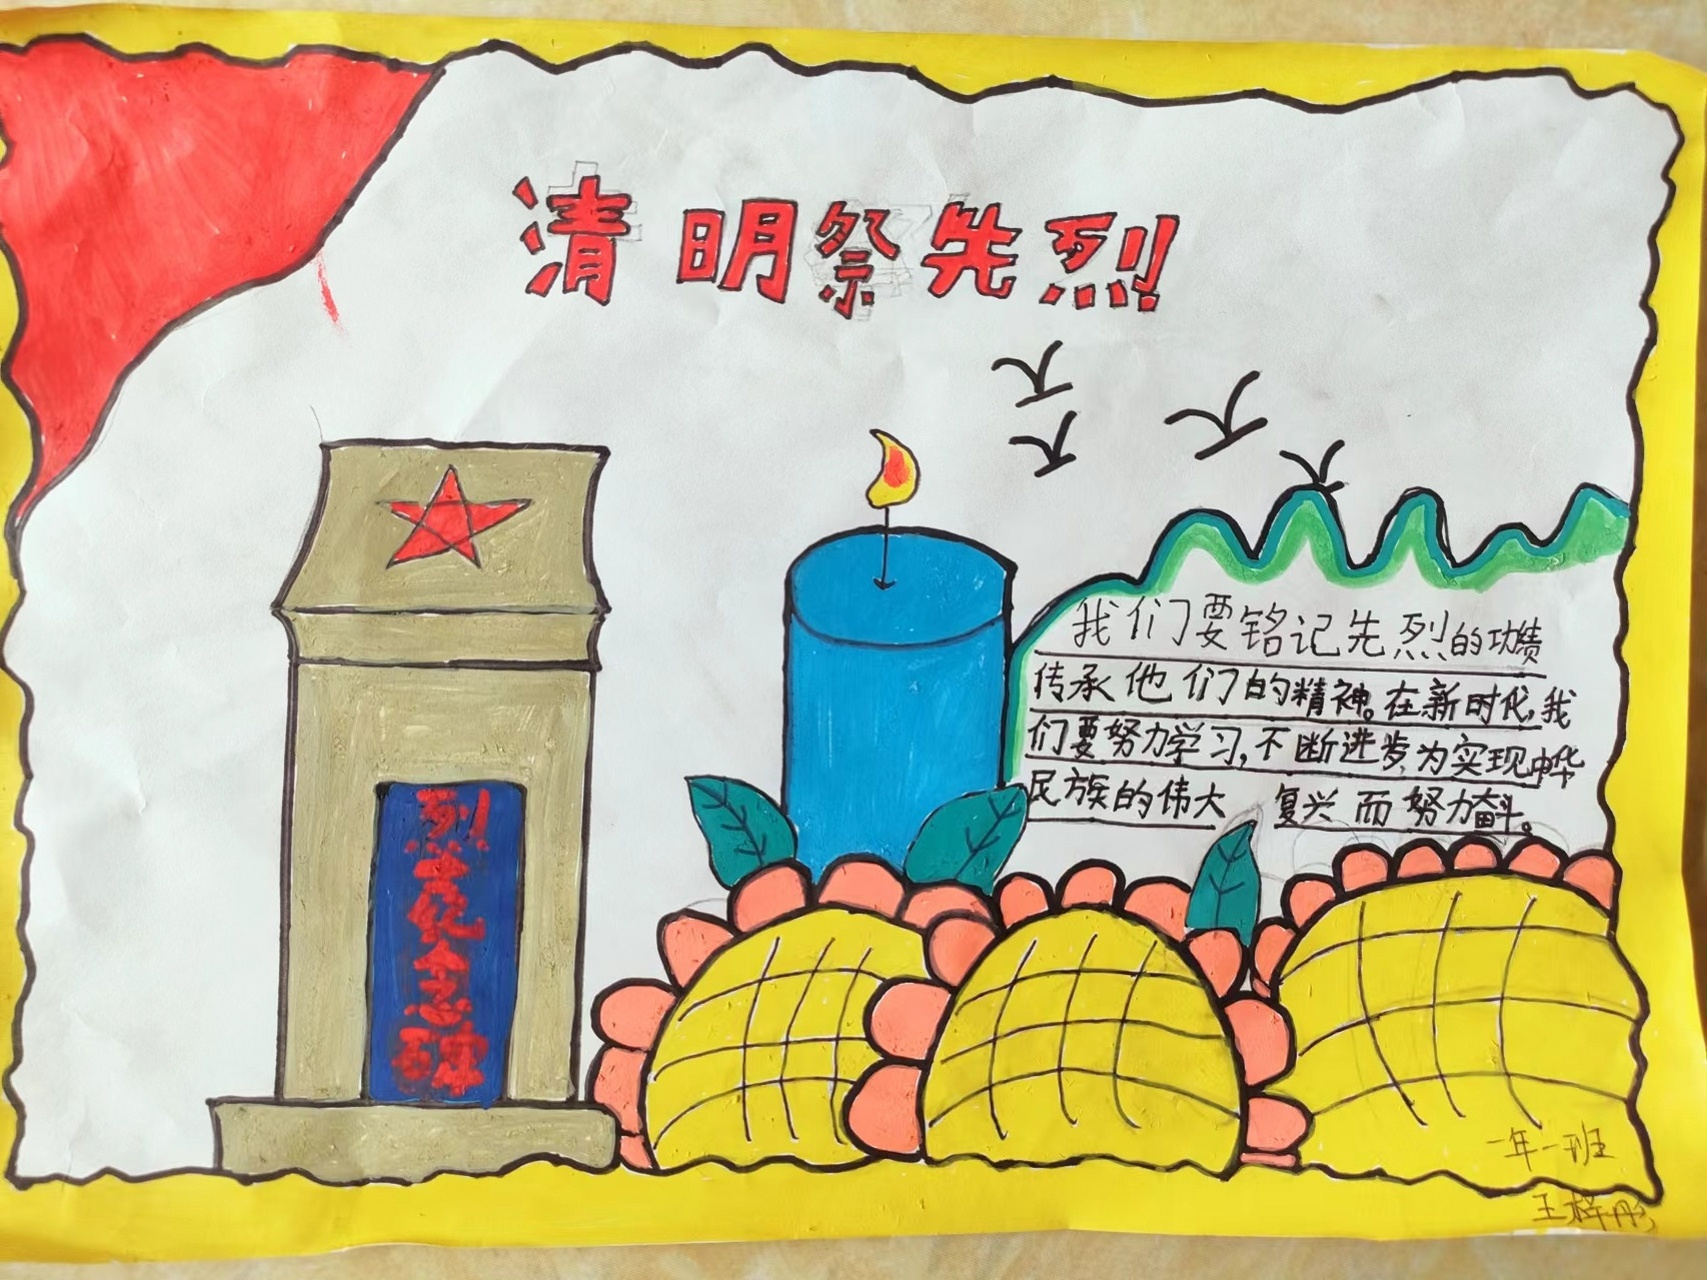 清明祭先烈
烈士纪念碑
我们要铭记先烈的功绩
传承他们的精神。在新时代,我
们要努力学习,不断进步,为实现中华
民族的伟大 复兴而努力奋斗。
一年一班
王梓彤